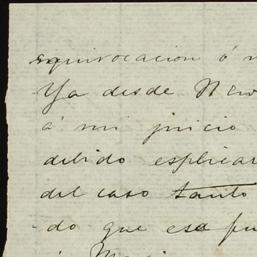 equivocacion ó
Ya desde New
á mi juicio
debido esplicar
del caso tanto
do que esa